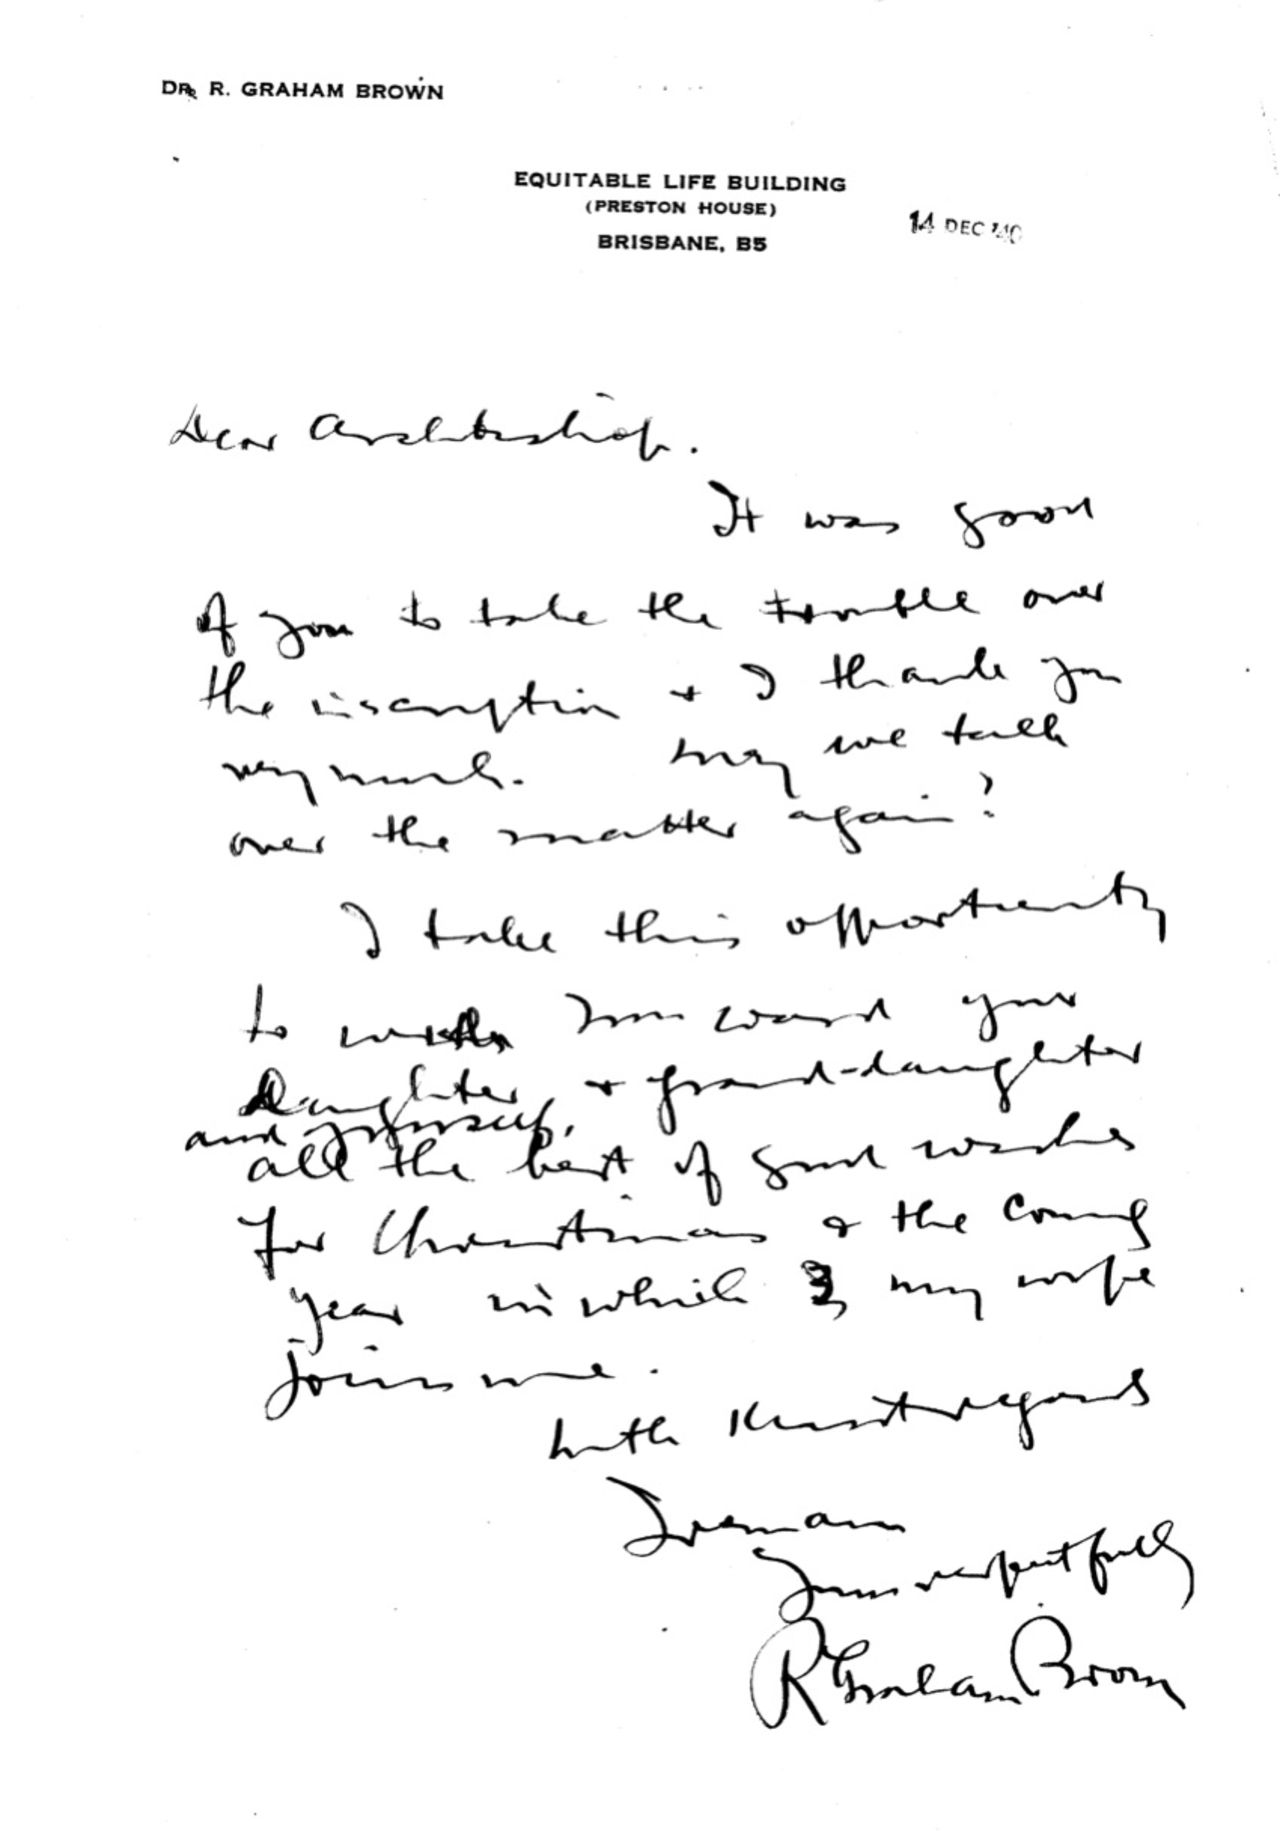 DR. R. GRAHAM BROWN
EQUITABLE LIFE BUILDING
(PRESTON HOUSE)
BRISBANE, B5
14 DEC '40
Dear Archbishop.
It was good
of you to take the trouble over
the inscription + I thank you
very much. May we talk
over the matter again?
I take this opportunity
to wish Mrs Wand your
Daughter, + grand-daughter
and yourself,
all the best of good wishes
for Christmas & the coming
year in which my wife
joins me.
With kindest regards
I remain
Yours respectfully
R Graham Brown